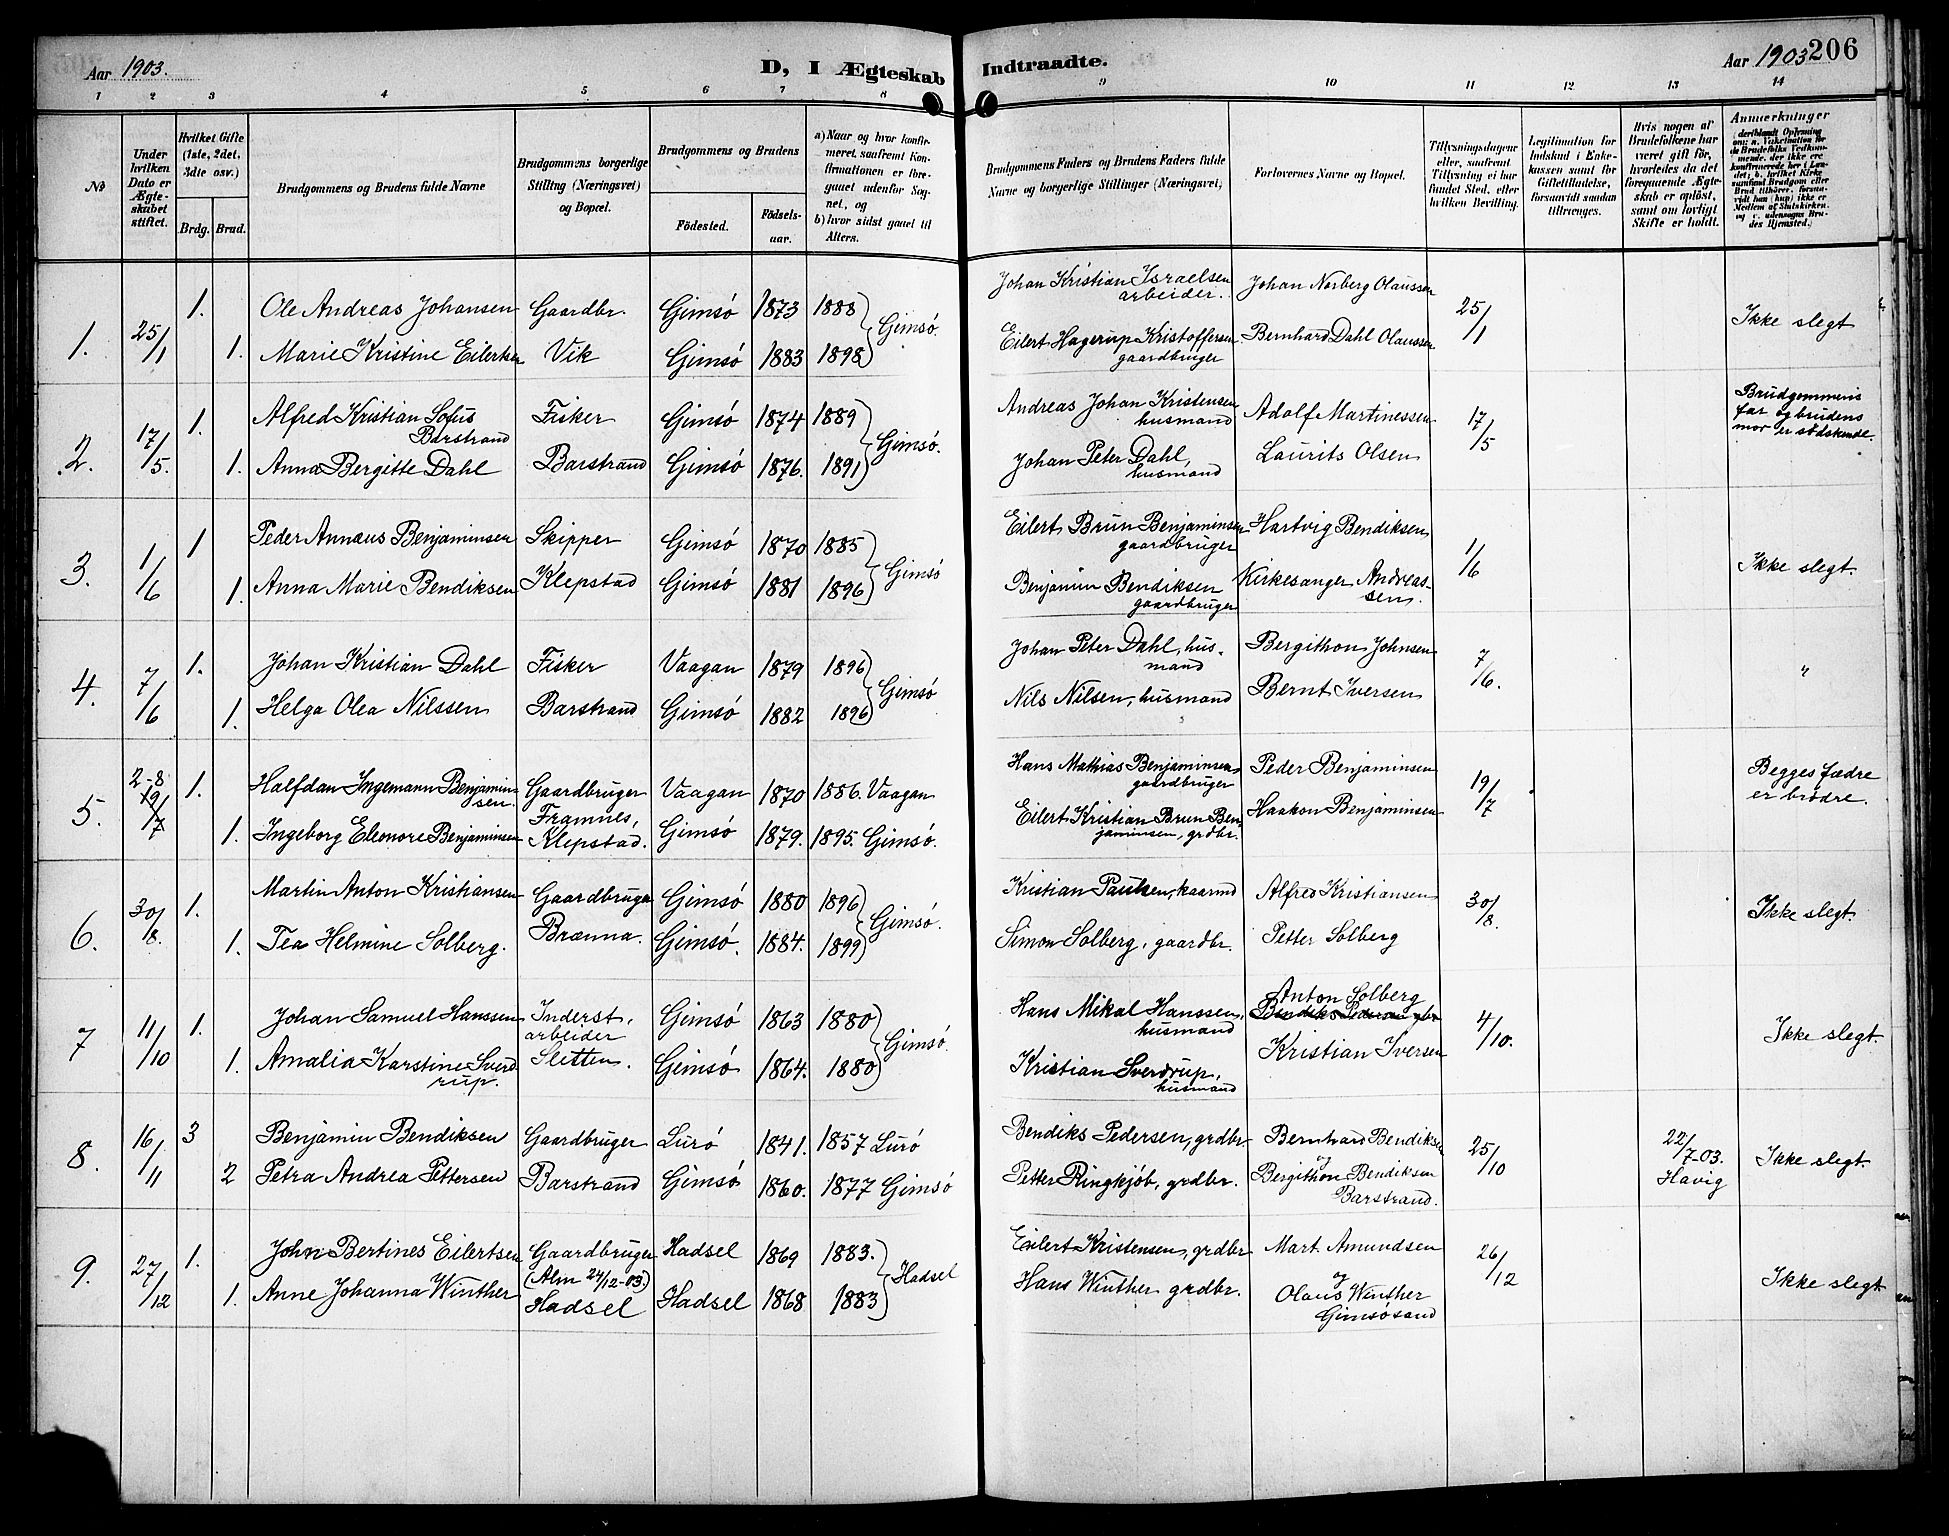 Aar 1903.
D, I Ægteskab Indtraadte.
Aar 1903 206
1 2 3 4 5 6 7 8 9 10 11 12 13 14
No
Under hvilken Dato er Ægteskabet stiftet.
Hvilket Gifte (1ste, 2det, 3dte osv.)
Brdg. Brud.
Brudgommens og Brudens fulde Navne
Brudgommens borgerlige Stilling (Næringsvei) og Bopæl.
Brudgommens og Brudens
Fødested. Fødselsaar.
a) Naar og hvor konfirmeret, saafremt Konfirmationen er foregaaet udenfor Sognet, og
b) hvor sidst gaaet til Alters.
Brudgommens Faders og Brudens Faders fulde Navne og borgerlige Stillinger (Næringsvei)
Forlovernes Navne og Bopæl.
Tillysningsdagene eller, saafremt Tillysning ei har fundet Sted, efter hvilken Bevilling.
Legitimation for Indskud i Enkekassen samt for Giftetilladelse, forsaavidt saadan tiltrænges.
Hvis nogen af Brudefolkene har været gift før, hvorledes da det foregaaende Ægteskab er opløst, samt om lovligt Skifte er holdt.
Anmerkninger
1. 25/1 1. Ole Andreas Johansen Gaardbr. Gimsö 1873 1888 Gimsö. Johan Kristian Israelsen arbeider. Johan Norberg Olaussen 25/1 Ikke slegt
1. Marie Kristine Eilertsen Vik Gimsö 1883 1898 Eilert Hagerup Kristoffersen gaardbruger Bernhard Dahl Olaussen
2. 17/5. 1. Alfred Kristian Sofus Barstrand Fisker Gimsö 1874 1889 Gimsö. Andreas Johan Kristensen husmand Adolf Martinessen 17/5 Brudgommens far og brudens mor er södskende.
1. Anna Bergitte Dahl Barstrand Gimsö 1876. 1891 Johan Peter Dahl, husmand Laurits Olsen
3. 1/6 1 Peder Annæus Benjaminsen Skipper Gimsö 1870 1885 Gimsö Eilert Brun Benjaminsen gaardbruger Hartvig Bendiksen 1/6 Ikke slegt.
1. Anna Marie Bendiksen Klepstad Gimsö 1881 1896 Benjamin Bendiksen gaardbruger Kirkesanger Andreassen.
4. 7/6 1. Johan Kristian Dahl Fisker Vaagan 1879 1896 Gimsö Johan Peter Dahl, husmand Bergithon Johnsen 7/6. "
1. Helga Olea Nilssen Barstrand Gimsö 1882 1896 Nils Nilsen, husmand Bernt Iversen
5. 2-8 19/7 1. Halfdan Ingemann Benjaminsen. Gaardbruger Framnes, Vaagan 1870 1886. Vaagan Hans Mathias Benjaminsen gaardbruger Peder Benjaminsen 19/7 Begges fædre er brödre.
1. Ingeborg Eleonore Benjaminsen Klepstad. Gimsö 1879. 1895. Gimsö. Eilert Kristian Brun Benjaminsen, grdbr. Haakon Benjaminsen
6. 30/8. 1. Martin Anton Kristiansen Gaardbruger Gimsö 1880 1896 Gimsö. Kristian Paulsen, kaarmd Alfred Kristiansen 30/8. Ikke slegt.
1. Tea Helmine Solberg. Brænna. Gimsö. 1884. 1899 Simon Solberg, gaardbr. Petter Solberg
7 11/10 1. Johan Samuel Hanssen Inderst, arbeider Gimsö 1863 1880 Gimsö. Hans Mikal Hanssen, husmand Anton Solberg 4/10. Ikke slegt.
1. Amalia Karstine Sverdrup. Sletten. Gimsö 1864. 1880 Kristian Sverdrup, husmand Kristian Iversen
8. 16/11 3 Benjamin Bendiksen Gaardbruger Lurö 1841. 1857 Lurö Bendiks Pedersen, grdbr. Bernhard Bendiksen og 25/10 22/7-03. Havig Ikke slegt.
2 Petra Andrea Pettersen Barstrand Gimsö 1860. 1877 Gimsö Petter Ringkjöb, grdbr. Bergithon Bendiksen Barstrand.
9. 27/12 1. John Bertines Eilertsen Gaardbruger (Alm 24/12-03) Hadsel 1869 1883. Hadsel Eilert Kristensen, grdbr Mart. Amundsen og 26/12 Ikke slegt
1. Anne Johanna Winther Hadsel Hadsel 1868 1883 Hans Winther grdbr. Olaus Winther Gimsösand